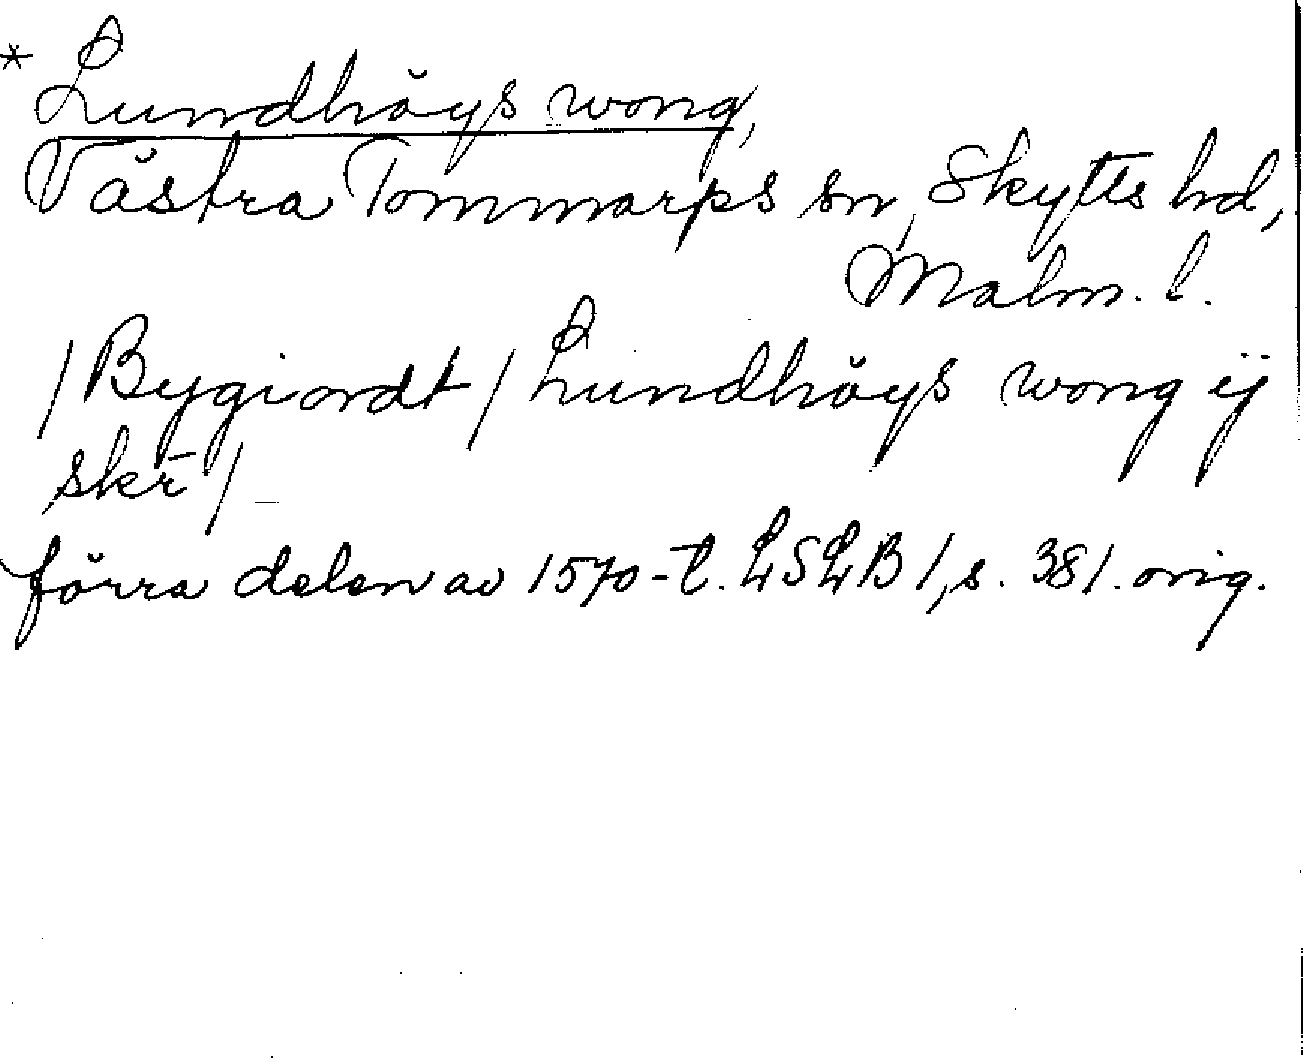 * Lundhöys wong,
Västra Tommarps sn, Skytts hd,
Malm. l.
/Bygiordt/ Lundhöys wong ij
skr /_
förra delen av 1570-t. LSLB 1, s. 381. orig.